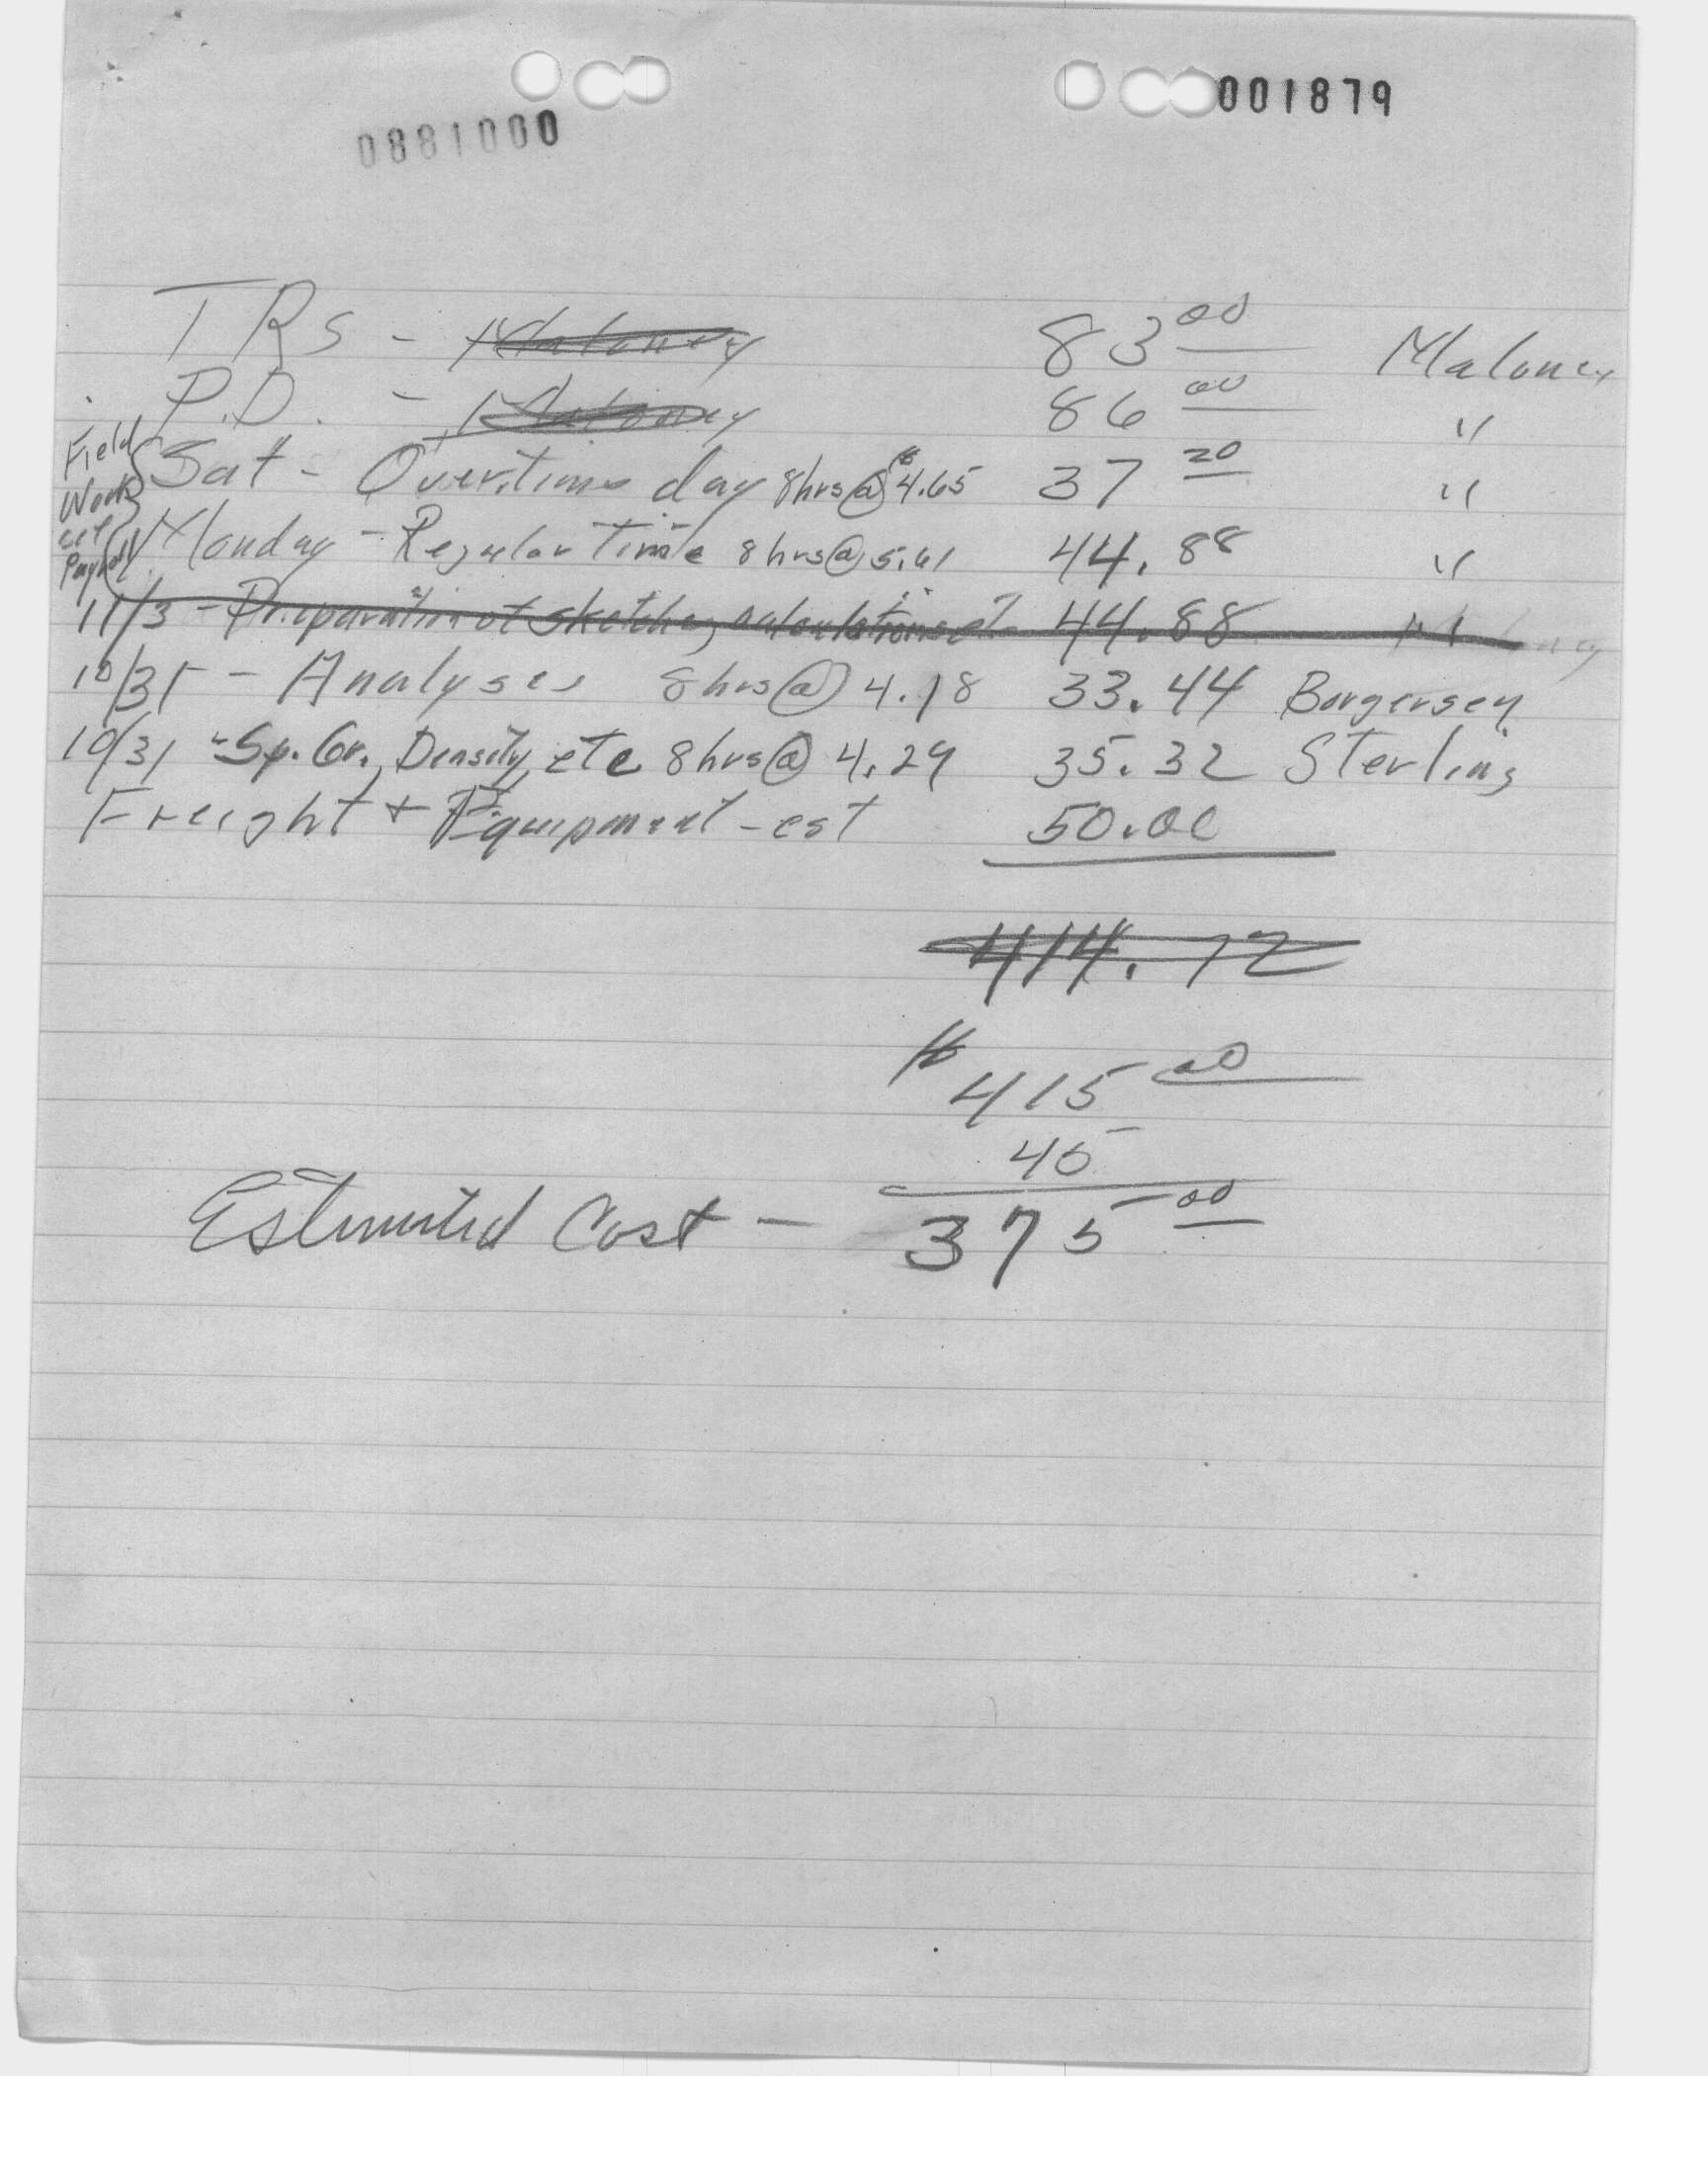 001879
0881000
TRs - Maloney 83 00 Maloney
P.D. - Maloney 86 00 "
Field Work
Sat - Overtime day 8hrs @ $4.65 37 20 "
Monday - Regular Time 8 hrs @ 5.61 44.88 "
11/3 - Preparation of sketches, calculations etc 44.88
10/31 - Analyses 8 hrs @ 4.18 33.44 Borgersen
10/31 - Sp. Gr., Density, etc 8 hrs @ 4.29 35.32 Sterling
Freight + Equipment - est 50.00
414.72
$ 415 00
40
Estimated Cost - 375 00